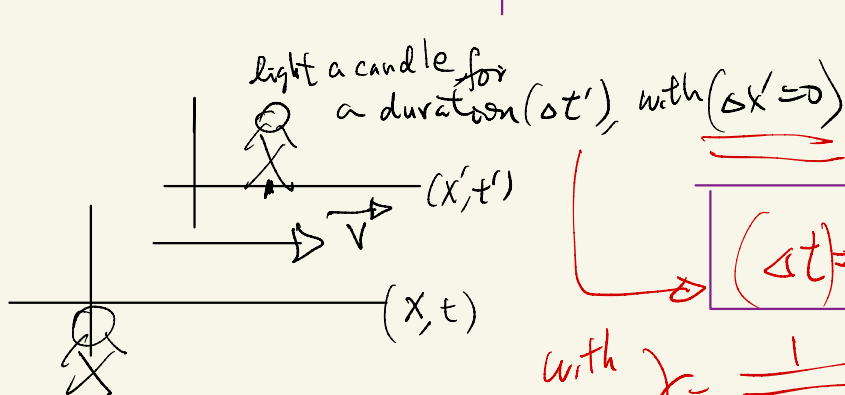 light a candle for
a duration (Δt'), with (Δx'=0)
(x', t')
V
(Δt)=
(x, t)
with γ = 1